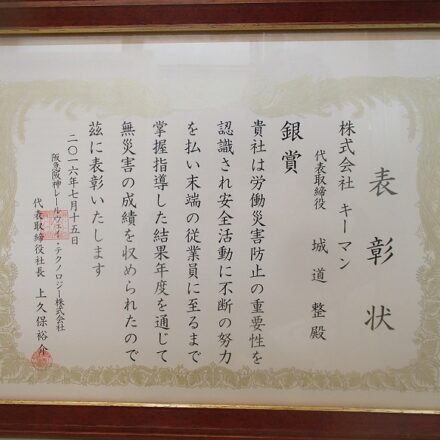 表彰状
株式会社 キーマン
代表取締役 城道 整殿
銀賞
貴社は労働災害防止の重要性を
認識され安全活動に不断の努力
を払い末端の従業員に至るまで
掌握指導した結果年度を通じて
無災害の成績を収められたので
茲に表彰いたします
二〇一六年七月十五日
阪急阪神レールウェイ・テクノロジー株式会社
代表取締役社長 上久保裕介